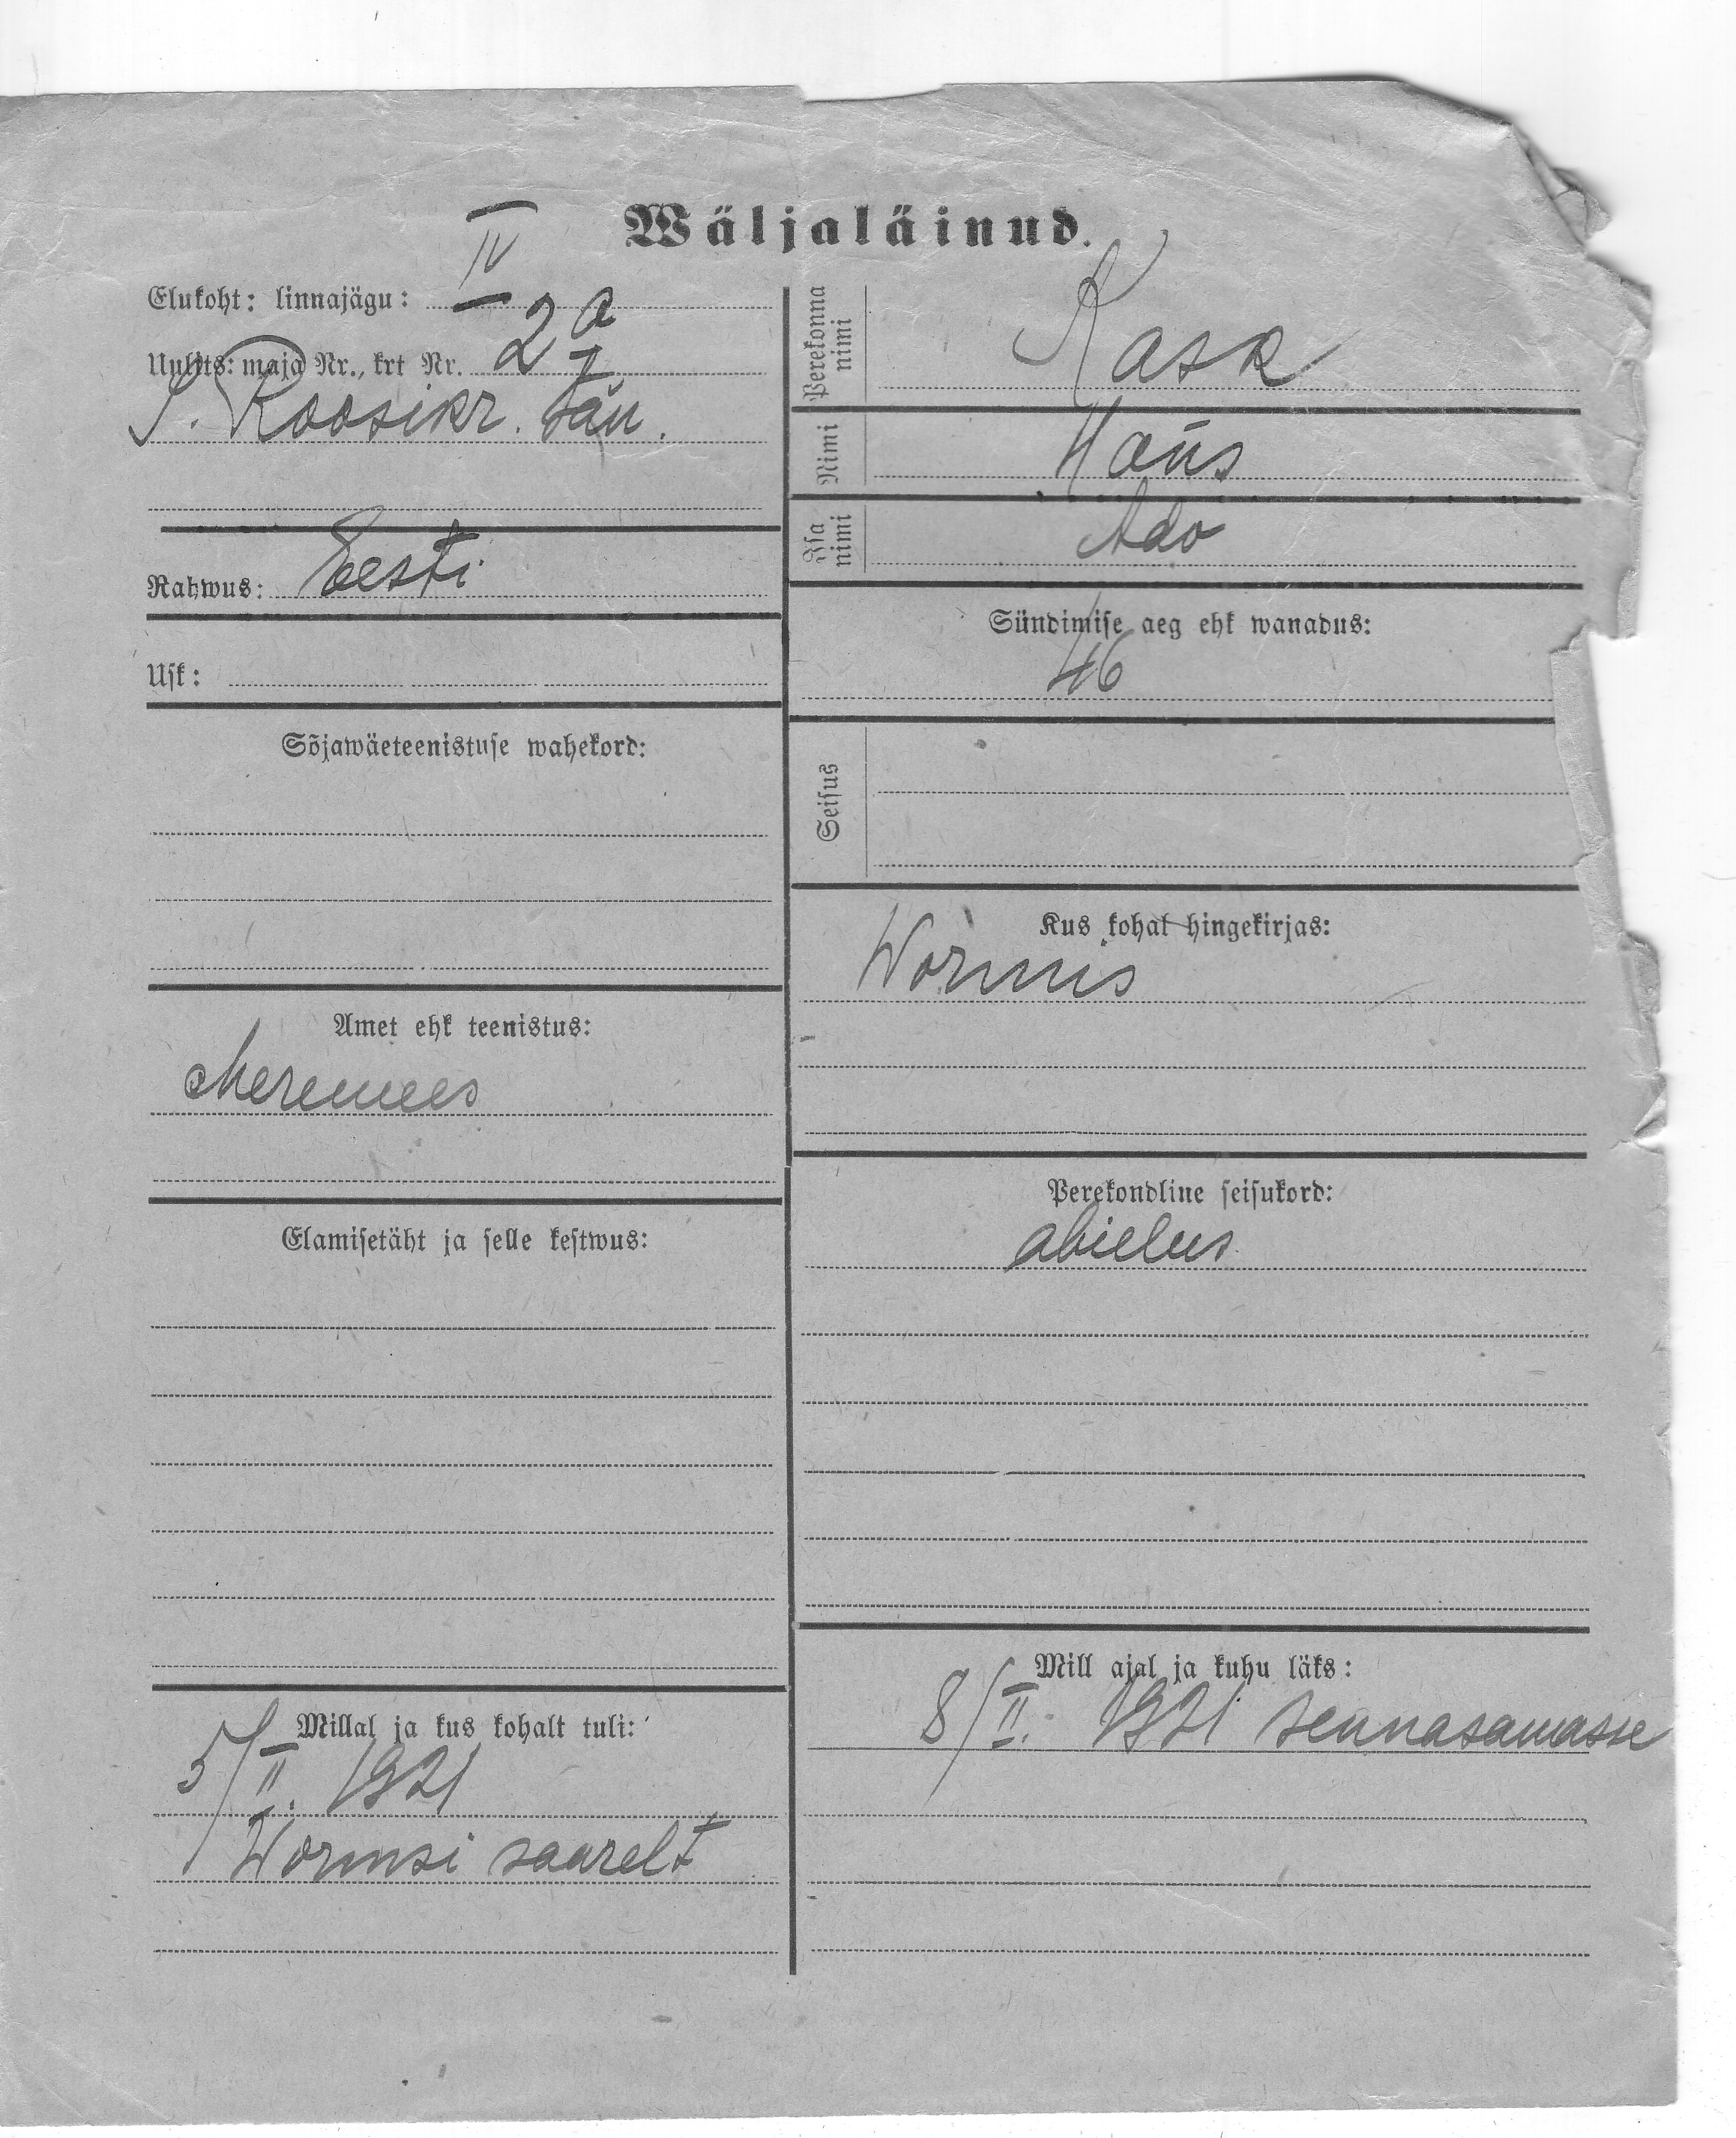 Wäljaläinud.
Elukoht: linnajägu: IV
Uulits: maja Nr., krt Nr. 2
S. Roosikr. tän.
Rahwus: Eesti
Usk:
Sõjawäeteenistuse wahekord:
Amet ehk teenistus:
Meremees
Elamisetäht ja selle kestwus:
Millal ja kus kohalt tuli:
5/II. 1921
Wormsi saarelt
Perekonna nimi Kask
Nimi Hans
Isa nimi Ado
Sündimise aeg ehk wanadus:
46
Seisus
Kus kohal hingekirjas:
Wormis
Perekondline seisukord:
abielus
Mill ajal ja kuhu läks:
8/II. 1921 sennasamasse